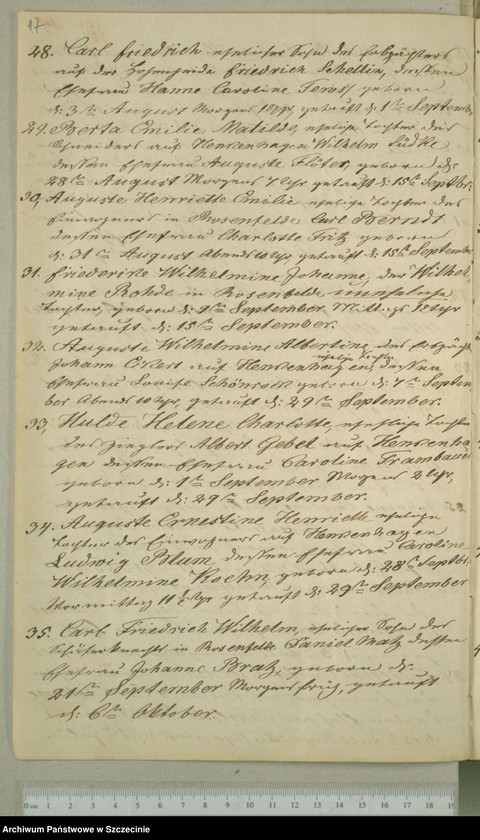 17
28. Carl Friedrich ehelicher Sohn des Erbpächters
auf der Hohenheide Friedrich Schellin, dessen
Ehefrau Hanne Caroline geboren
d: 3ten August Morgens getauft d: 1ten Septemb.
29. Berta Emilie Matilde, eheliche Tochter des
Schneiders auf Henkenhagen Wilhelm Lüdke
dessen Ehefrau Auguste Flöter, geboren d:
28ten August Morgens 7 Uhr getauft d: 15ten Septbr.
30, Auguste Henriette Emilie eheliche Tochter des
Einwohners in Rosenfelde Carl Berndt
dessen Ehefrau Charlotte Fritz geboren
d: 31ten August Abends 10 Uhr, getauft d: 15ten September
31. Friederike Wilhelmine Johanne, der Wilhel-
mine Rohde in Rosenfelde uneheliche
Tochter, geboren d: September Mittags Uhr
getauft d: 15ten September.
32. Auguste Wilhelmine Albertine des Erbpächt
eheliche Tochter
Johann Ckert auf Henkenhagen, dessen
Ehefrau Louise Schönrock geboren d: 7ten Septem
ber Abends 10 Uhr, getauft d: 29ten September.
33, Hulde Helene Charlotte, eheliche Tochter
des Zieglers Albert Gebel auf Henkenha-
gen dessen Ehefrau Caroline Frambauer
geboren d: 1ten September Morgens 2 Uhr,
getauft d: 29ten September.
34. Auguste Ernestine Henriette eheliche
Tochter des Einwohners auf Henkenhagen
Ludwig Blum, dessen Ehefrau Caroline
Wilhelmine Koehn, geboren d: 28ten Septbr.
Vormittag 11½ Uhr getauft d: 29ten September
35. Carl Friedrich Wilhelm, ehelicher Sohn des
Schäferknecht in Rosenfelde Daniel Matz dessen
Ehefrau Johanne Bratz, geboren d:
21ten September Morgens früh, getauft
d: 6ten Oktober.
0 cm 1 2 3 4 5 6 7 8 9 10 11 12 13 14 15 16 17 18 19
Archiwum Państwowe w Szczecinie